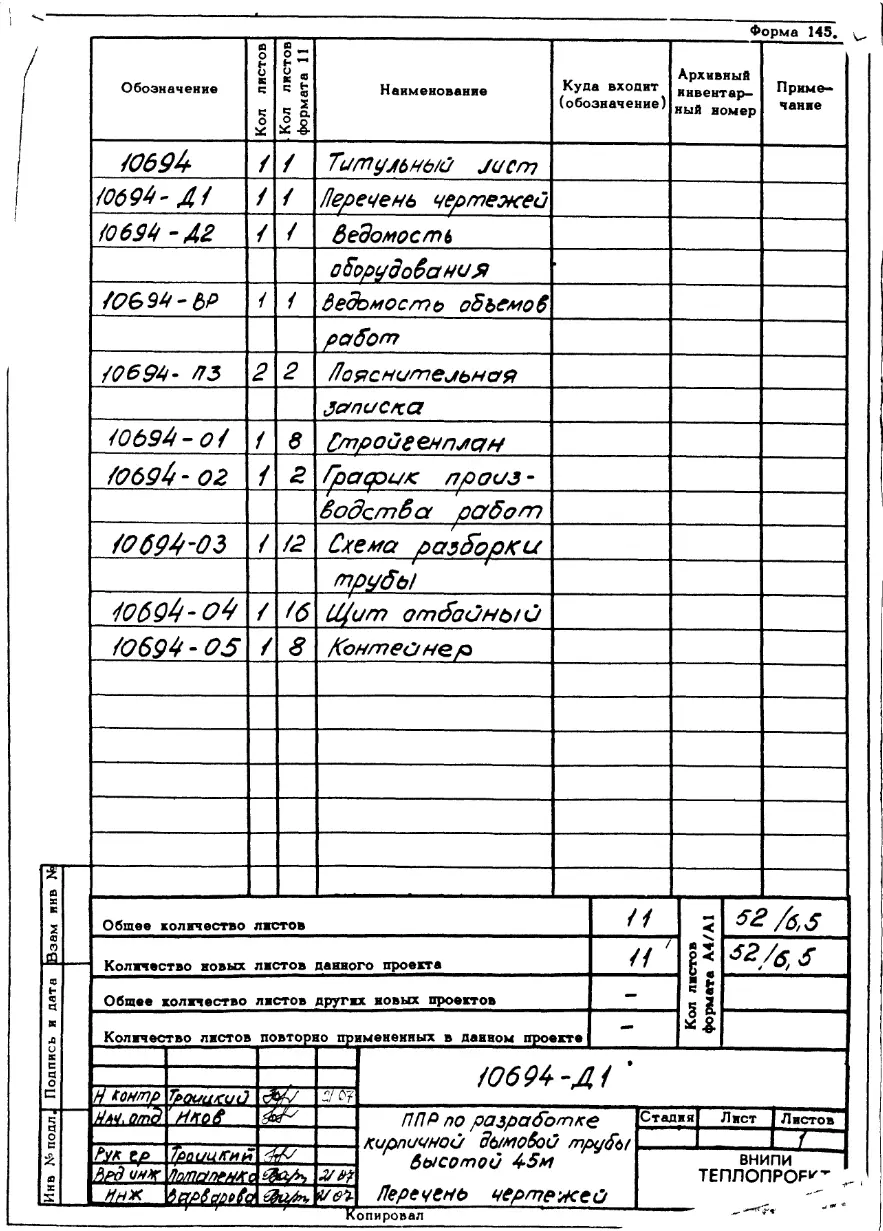 Форма 145.
Обозначение
Кол листов
Кол листов формата 11
Наименование
Куда входит (обозначение)
Архивный инвентар- ный номер
Приме- чание
10694 1 1 Титульный лист
10694-Д1 1 1 Перечень чертежей
10694-Д2 1 1 Ведомость
оборудования
10694-ВР 1 1 Ведомость объемов
работ
10694-ПЗ 2 2 Пояснительная
записка
10694-01 1 8 Стройгенплан
10694-02 1 2 График произ-
водства работ
10694-03 1 12 Схема разборки
трубы
10694-04 1 16 Щит отбойный
10694-05 1 8 Контейнер
Общее количество листов 11
Количество новых листов данного проекта 11
Общее количество листов других новых проектов –
Количество листов повторно примененных в данном проекте –
Кол листов формата А4/А1
52/6,5
52/6,5
Взам инв №
Подпись и дата
Инв № подл.
10694-Д1
Н контр Троицкий 21 07
Нач. отд
Рук гр Троицкий
Вед инж Потапенко 21 07
Инж Варварова 21 07
ППР по разработке
кирпичной дымовой трубы
высотой 45м
Перечень чертежей
Стадия Лист Листов
1
ВНИПИ
Копировал